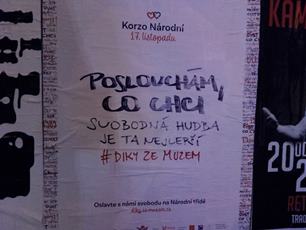 Korzo Národní
17. listopadu
POSLOUCHÁM,
CO CHCI
SVOBODNÁ HUDBA
JE TA NEJLEPŠÍ
#DIKY ZE MUZEM
Oslavte s námi svobodu na Národní třídě
KAM
20
2
RET
TRAC